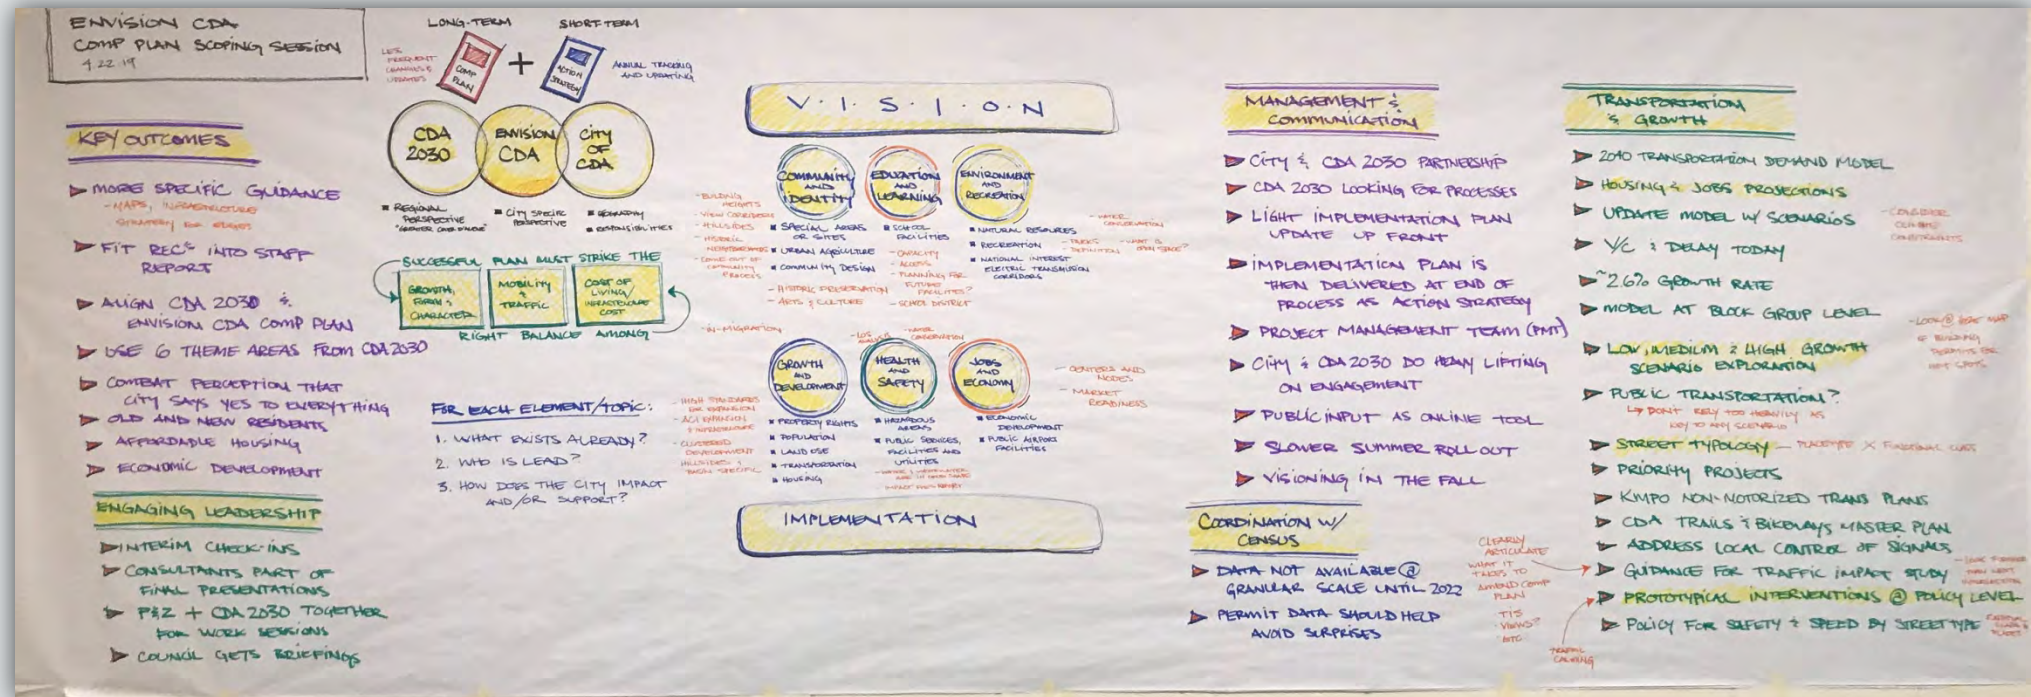 ENVISION CDA
COMP PLAN SCOPING SESSION
4.22.19
LONG-TERM
SHORT-TERM
LESS
FREQUENT
CHANGES &
UPDATES
COMP
PLAN
+
ACTION
STRATEGY
ANNUAL TRACKING
AND UPDATING
CDA
2030
ENVISION
CDA
CITY
OF
CDA
REGIONAL
PERSPECTIVE
CITY SPECIFIC
PERSPECTIVE
GEOGRAPHY
RESPONSIBILITIES
SUCCESSFUL PLAN MUST STRIKE THE
GROWTH,
FORM &
CHARACTER
MOBILITY
&
TRAFFIC
COST OF
LIVING/
INFRASTRUCTURE
COST
RIGHT BALANCE AMONG
KEY OUTCOMES
MORE SPECIFIC GUIDANCE
- MAPS, INFRASTRUCTURE
STRATEGY FOR EDGES
FIT REC'S INTO STAFF
REPORT
ALIGN CDA 2030 &
ENVISION CDA COMP PLAN
USE 6 THEME AREAS FROM CDA 2030
COMBAT PERCEPTION THAT
CITY SAYS YES TO EVERYTHING
OLD AND NEW RESIDENTS
AFFORDABLE HOUSING
ECONOMIC DEVELOPMENT
ENGAGING LEADERSHIP
INTERIM CHECK-INS
CONSULTANTS PART OF
FINAL PRESENTATIONS
P&Z + CDA 2030 TOGETHER
FOR WORK SESSIONS
COUNCIL GETS BRIEFINGS
FOR EACH ELEMENT/TOPIC:
1. WHAT EXISTS ALREADY?
2. WHO IS LEAD?
3. HOW DOES THE CITY IMPACT
AND/OR SUPPORT?
V·I·S·I·O·N
COMMUNITY
AND
IDENTITY
- BUILDING
HEIGHTS
- VIEW CORRIDORS
- HILLSIDES
- HISTORIC
NEIGHBORHOODS
- COME OUT OF
COMMUNITY
PROCESS
SPECIAL AREAS
OR SITES
URBAN AGRICULTURE
COMMUNITY DESIGN
- HISTORIC PRESERVATION
- ARTS & CULTURE
EDUCATION
AND
LEARNING
SCHOOL
FACILITIES
- CAPACITY
- ACCESS
- PLANNING FOR
FUTURE
FACILITIES?
- SCHOOL DISTRICT
ENVIRONMENT
AND
RECREATION
- WATER
CONSERVATION
NATURAL RESOURCES
RECREATION
- PARKS
DEFINITION
- WHAT IS
OPEN SPACE?
NATIONAL INTEREST
ELECTRIC TRANSMISSION
CORRIDORS
- IN-MIGRATION
GROWTH
AND
DEVELOPMENT
- HIGH STANDARDS
FOR EXPANSION
- ACI EXPANSION
& INFRASTRUCTURE
- CLUSTERED
DEVELOPMENT
HILLSIDES &
BASIN SPECIFIC
PROPERTY RIGHTS
POPULATION
LAND USE
TRANSPORTATION
HOUSING
- LOS
ANALYSIS
- WATER
CONSERVATION
HEALTH
AND
SAFETY
HAZARDOUS
AREAS
PUBLIC SERVICES,
FACILITIES AND
UTILITIES
JOBS
AND
ECONOMY
- CENTERS AND
NODES
- MARKET
READINESS
ECONOMIC
DEVELOPMENT
PUBLIC AIRPORT
FACILITIES
IMPLEMENTATION
MANAGEMENT &
COMMUNICATION
CITY & CDA 2030 PARTNERSHIP
CDA 2030 LOOKING FOR PROCESSES
LIGHT IMPLEMENTATION PLAN
UPDATE UP FRONT
IMPLEMENTATION PLAN IS
THEN DELIVERED AT END OF
PROCESS AS ACTION STRATEGY
PROJECT MANAGEMENT TEAM (PMT)
CITY & CDA 2030 DO HEAVY LIFTING
ON ENGAGEMENT
PUBLIC INPUT AS ONLINE TOOL
SLOWER SUMMER ROLL OUT
VISIONING IN THE FALL
COORDINATION W/
CENSUS
DATA NOT AVAILABLE @
GRANULAR SCALE UNTIL 2022
PERMIT DATA SHOULD HELP
AVOID SURPRISES
CLEARLY
ARTICULATE
WHAT IT
TAKES TO
AMEND COMP
PLAN
- TIS
- VIEWS?
- ETC
TRAFFIC
CALMING
TRANSPORTATION
& GROWTH
2040 TRANSPORTATION DEMAND MODEL
HOUSING & JOBS PROJECTIONS
UPDATE MODEL W/ SCENARIOS
- CONSIDER
CONSTRAINTS
V/C & DELAY TODAY
~2.6% GROWTH RATE
MODEL AT BLOCK GROUP LEVEL
- LOOK @ HEAT MAP
OF BUILDING
PERMITS FOR
HOT SPOTS
LOW, MEDIUM & HIGH GROWTH
SCENARIO EXPLORATION
PUBLIC TRANSPORTATION?
DON'T RELY TOO HEAVILY AS
KEY TO ANY SCENARIO
STREET TYPOLOGY - PLACETYPE X FUNCTIONAL CLASS
PRIORITY PROJECTS
KMPO NON-MOTORIZED TRANS PLANS
CDA TRAILS & BIKEWAYS MASTER PLAN
ADDRESS LOCAL CONTROL OF SIGNALS
GUIDANCE FOR TRAFFIC IMPACT STUDY
- LOOK FURTHER
THAN NEXT
INTERSECTION
PROTOTYPICAL INTERVENTIONS @ POLICY LEVEL
POLICY FOR SAFETY & SPEED BY STREET TYPE